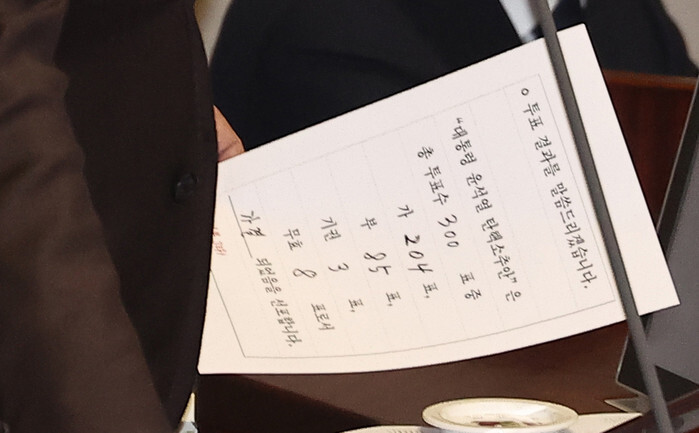 ○ 투표 결과를 말씀드리겠습니다.
"대통령 윤석열 탄핵소추안"은
총 투표수 300 표 중
가 204 표,
부 85 표,
기권 3 표,
무효 8 표로서
가결 되었음을 선포합니다.